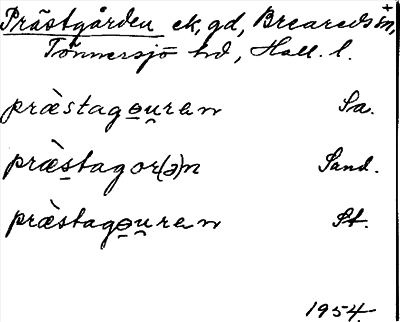 Prästgården ek, gd, Breareds sn, +
Tönnersjö hd, Hall. l.
præ̀stagɵ̲u̯ren Sa.
præ̀s̲tagor(ə)n Sand.
præ̀stagɵ̲u̯ren St.
1954.